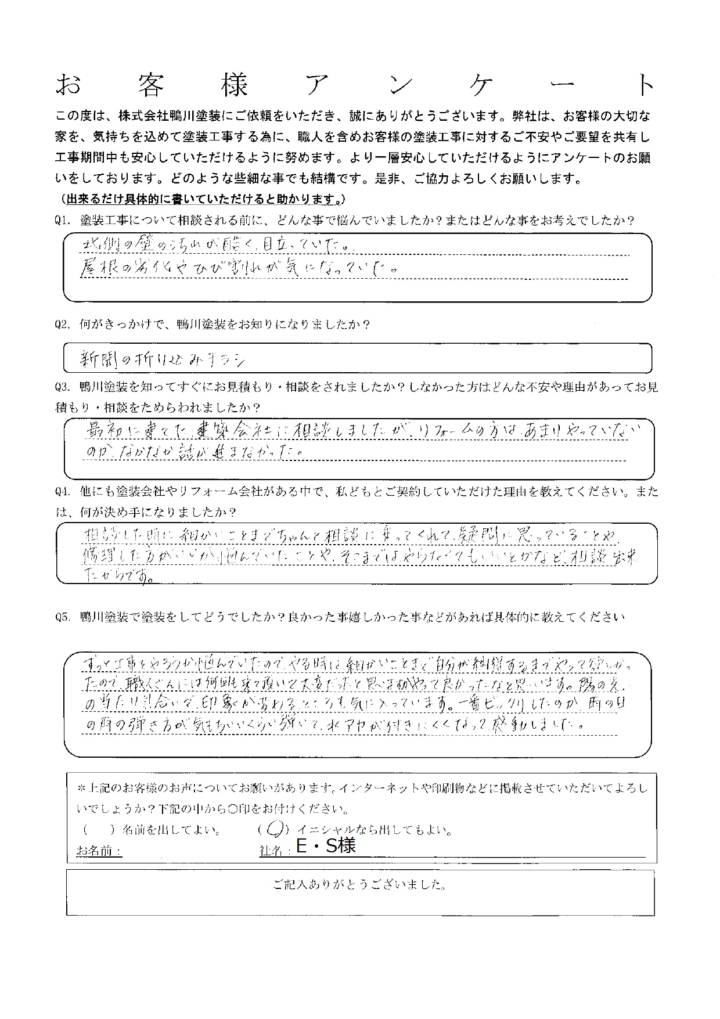 お客様アンケート
この度は、株式会社鴨川塗装にご依頼をいただき、誠にありがとうございます。弊社は、お客様の大切な
家を、気持ちを込めて塗装工事する為に、職人を含めお客様の塗装工事に対するご不安やご要望を共有し
工事期間中も安心していただけるように努めます。より一層安心していただけるようにアンケートのお願
いをしております。どのような些細な事でも結構です。是非、ご協力よろしくお願いします。
（出来るだけ具体的に書いていただけると助かります。）
Q1. 塗装工事について相談される前に、どんな事で悩んでいましたか？またはどんな事をお考えでしたか？
北側の壁の汚れが酷く、目立っていた。
屋根の劣化やひび割れが気になっていた。
Q2. 何がきっかけで、鴨川塗装をお知りになりましたか？
新聞の折り込みチラシ
Q3. 鴨川塗装を知ってすぐにお見積もり・相談をされましたか？しなかった方はどんな不安や理由があってお見
積もり・相談をためらわれましたか？
最初に建てた建築会社に相談しましたが、リフォームの方は、あまりやっていない
のか、なかなか話が進まなかった。
Q4. 他にも塗装会社やリフォーム会社がある中で、私どもとご契約していただけた理由を教えてください。また
は、何が決め手になりましたか？
相談した時に細かいことまでちゃんと相談に乗ってくれて、疑問に思っていることや、
修理した方がいいか悩んでいたことや、そこまではやらなくてもいいとかなど、相談出来
たからです。
Q5. 鴨川塗装で塗装をしてどうでしたか？良かった事嬉しかった事などがあれば具体的に教えてください
ずっと工事をやろうか悩んでいたので、やる時は細かいことまで自分が納得するまでやって欲しかっ
たので、職人さんには何回も来て頂いて大変だったと思いますがやって良かったなと思います。陽の光
の当たり具合いで、印象が変わるところも気に入っています。一番ビックリしたのが、雨の日
の雨の弾き方が気もちいいくらい弾いて、水アカが付きにくくなって感動しました。
＊上記のお客様のお声についてお願いがあります。インターネットや印刷物などに掲載させていただいてよろし
いでしょうか？下記の中から○印をお付けください。
（　）名前を出してよい。　（○）イニシャルなら出してもよい。
お名前：　社名：E・S様
ご記入ありがとうございました。